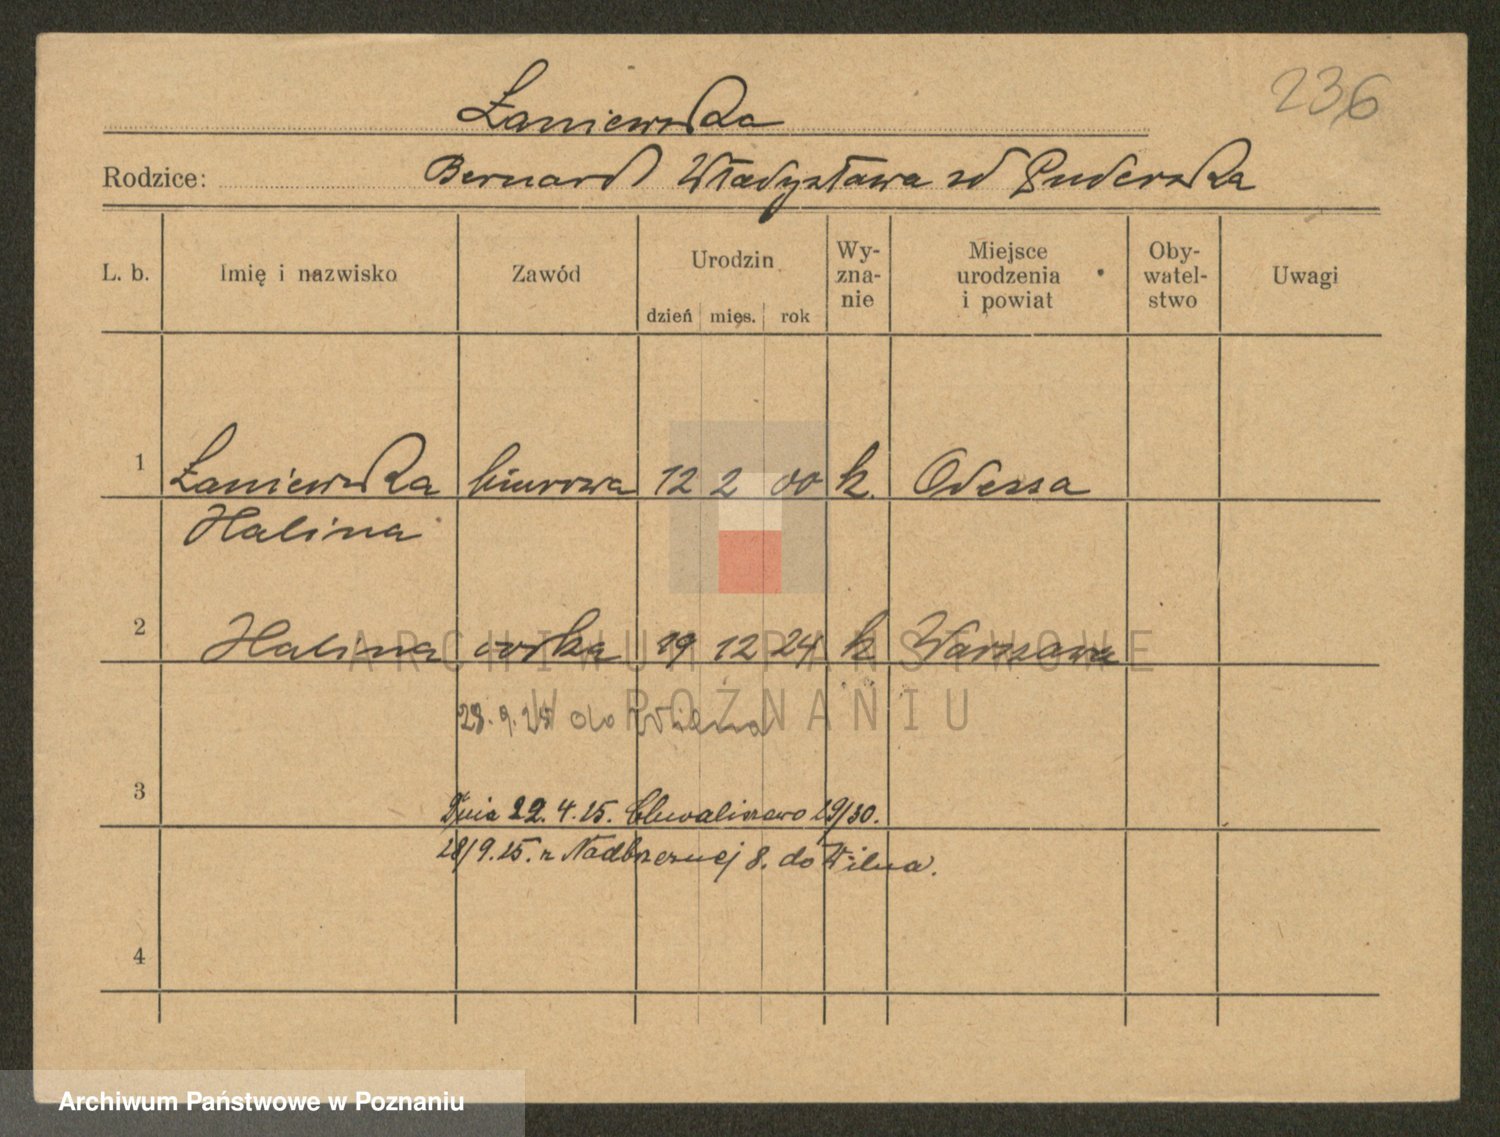 236
Łaniewska
Rodzice: Bernard Władysława zd
L. b. Imię i nazwisko Zawód Urodzin dzień mies. rok Wyznanie Miejsce urodzenia i powiat Obywatelstwo Uwagi
1 Łaniewska biurowa 12 2 00 k. Odessa
Halina
2 Halina córka 19 12 24 k Warszawa
ARCHIWUM PAŃSTWOWE
W POZNANIU
28.9.25 do Wilna
3 Dnia 22.4.25. Chwaliszewo 29/30.
28/9.25. z Nadbrzeżnej 8. do Wilna.
4
Archiwum Państwowe w Poznaniu